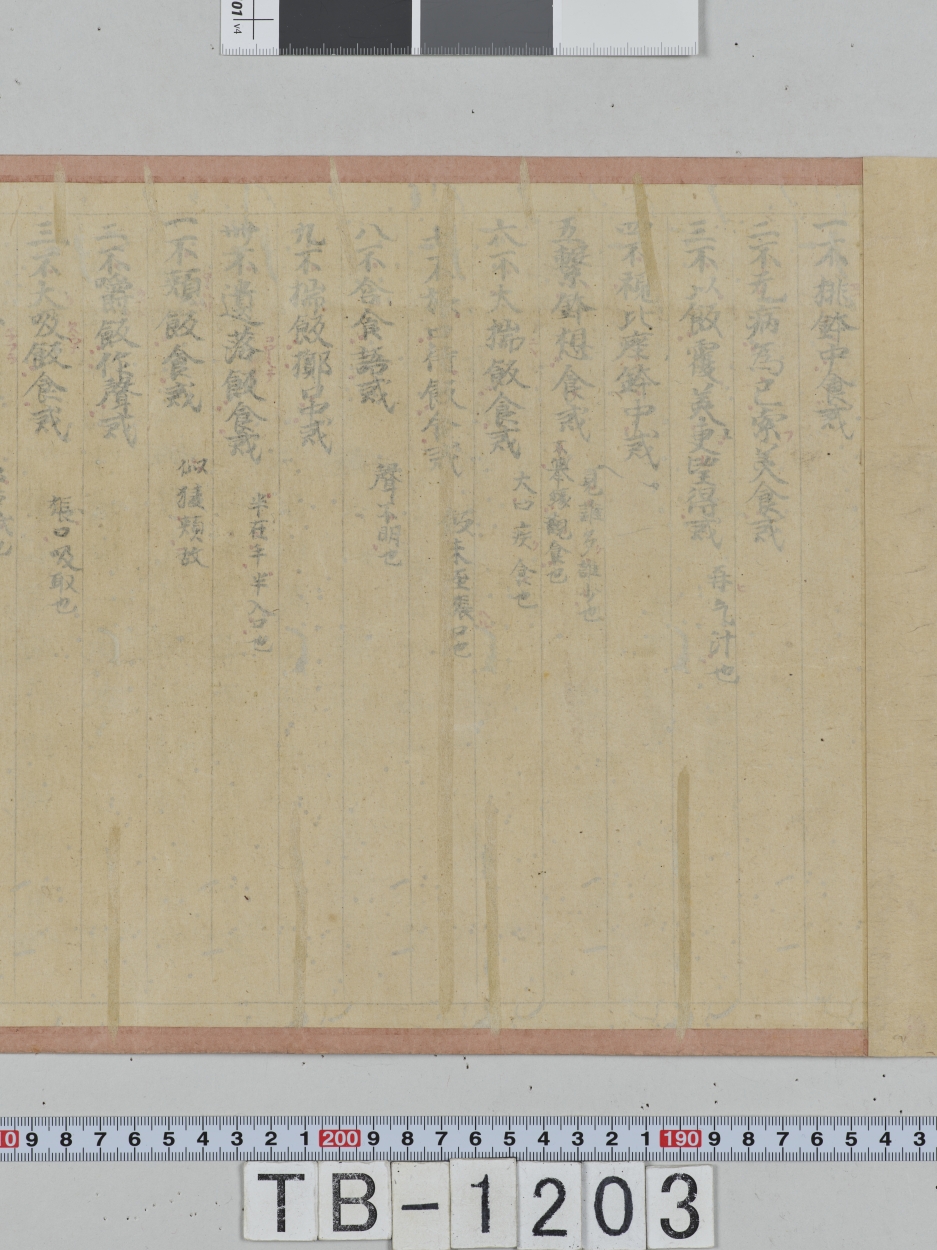 一不挑鉢中食戒
二不无病為己索美食戒
三不以飯覆羹更望得戒
再乞汁也
四不視比座鉢中戒
五繫鉢想食戒
見誰多誰少也
六不大揣飯食戒
大口疾食也
七不張口待飯食戒
飯未至張口也
八不含食語戒
聲不明也
九不揣飯擲口中戒
卌不遺落飯食戒
半在手半入口也
一不頬飯食戒
似獼頬故
二不嚼飯作聲戒
三不大吸飯食戒
張口吸取也
10 9 8 7 6 5 4 3 2 1 200 9 8 7 6 5 4 3 2 1 190 9 8 7 6 5 4 3
TB-1203